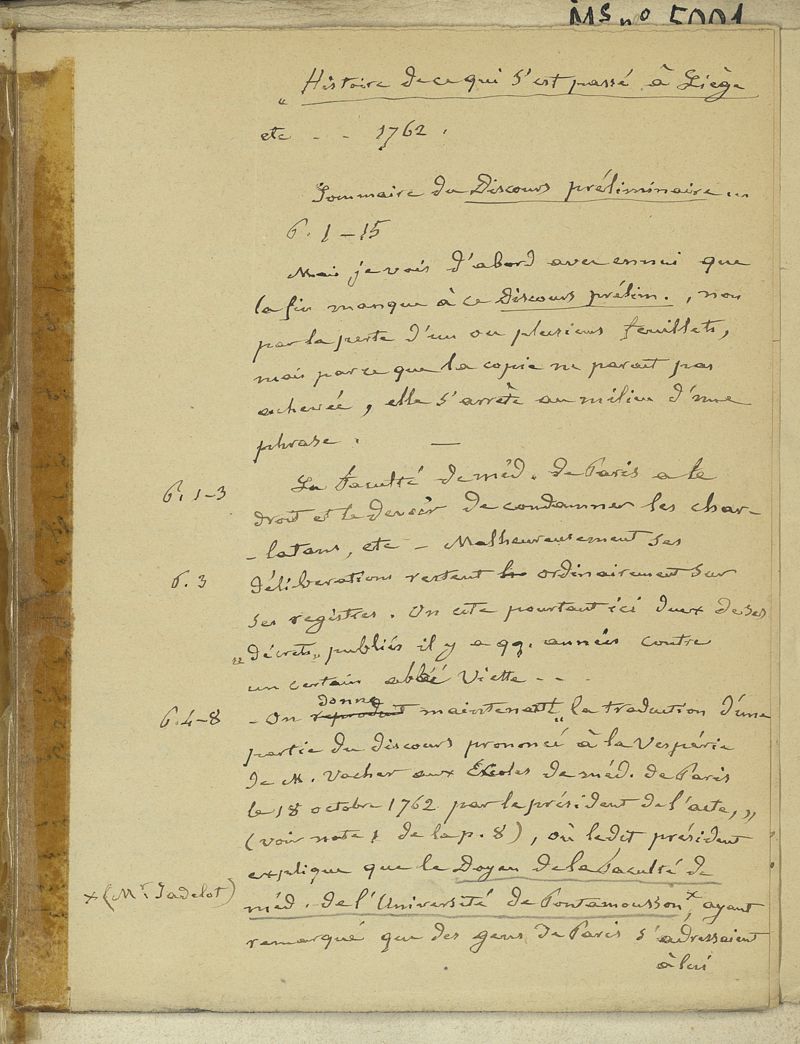 Ms no 5001
„ Histoire de ce qui s'est passé à Liège
etc - - 1762.
Sommaire du Discours préliminaire
p. 1-15
Mais je vois d'abord avec ennui que
la fin manque à ce Discours prélim., non
par la perte d'un ou plusieurs feuillets,
mais parce que la copie ne parait pas
achevée, elle s'arrête au milieu d'une
phrase. —
p. 1-3
La Faculté de méd. de Paris a le
droit et le devoir de condamner les char-
-latans, etc - Malheureusement ses
p. 3
délibérations restent ordinairement sur
ses registres. On cite pourtant ici deux de ses
„décrets„ publiés il y a qq. années contre
un certain abbé Viette - -
p. 4-8
- On reproduit donne maintenant „la traduction d'une
partie du discours prononcé à la Vespérie
de M. Vacher aux Écoles de méd. de Paris
le 18 octobre 1762 par le président de l'acte,„
(voir note 1 de la p. 8), où ledit président
explique que le Doyen de la Faculté de
x (Mr. Jadelot)
méd. de l'Université de Pontamousson x, ayant
remarqué que des gens de Paris s'adressaient
à lui